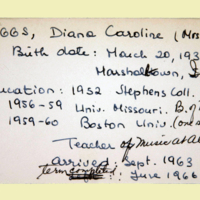 GGS, Diana Caroline (Mrs
Birth date: March 20, 193
Marshalltown, I
ucation: 1952 Stephens Coll.
1956-59 Univ. Missouri. B.
1959-60 Boston Univ. (one
Teacher of Music at
arrived: Sept. 1963
Term completed: June 1966